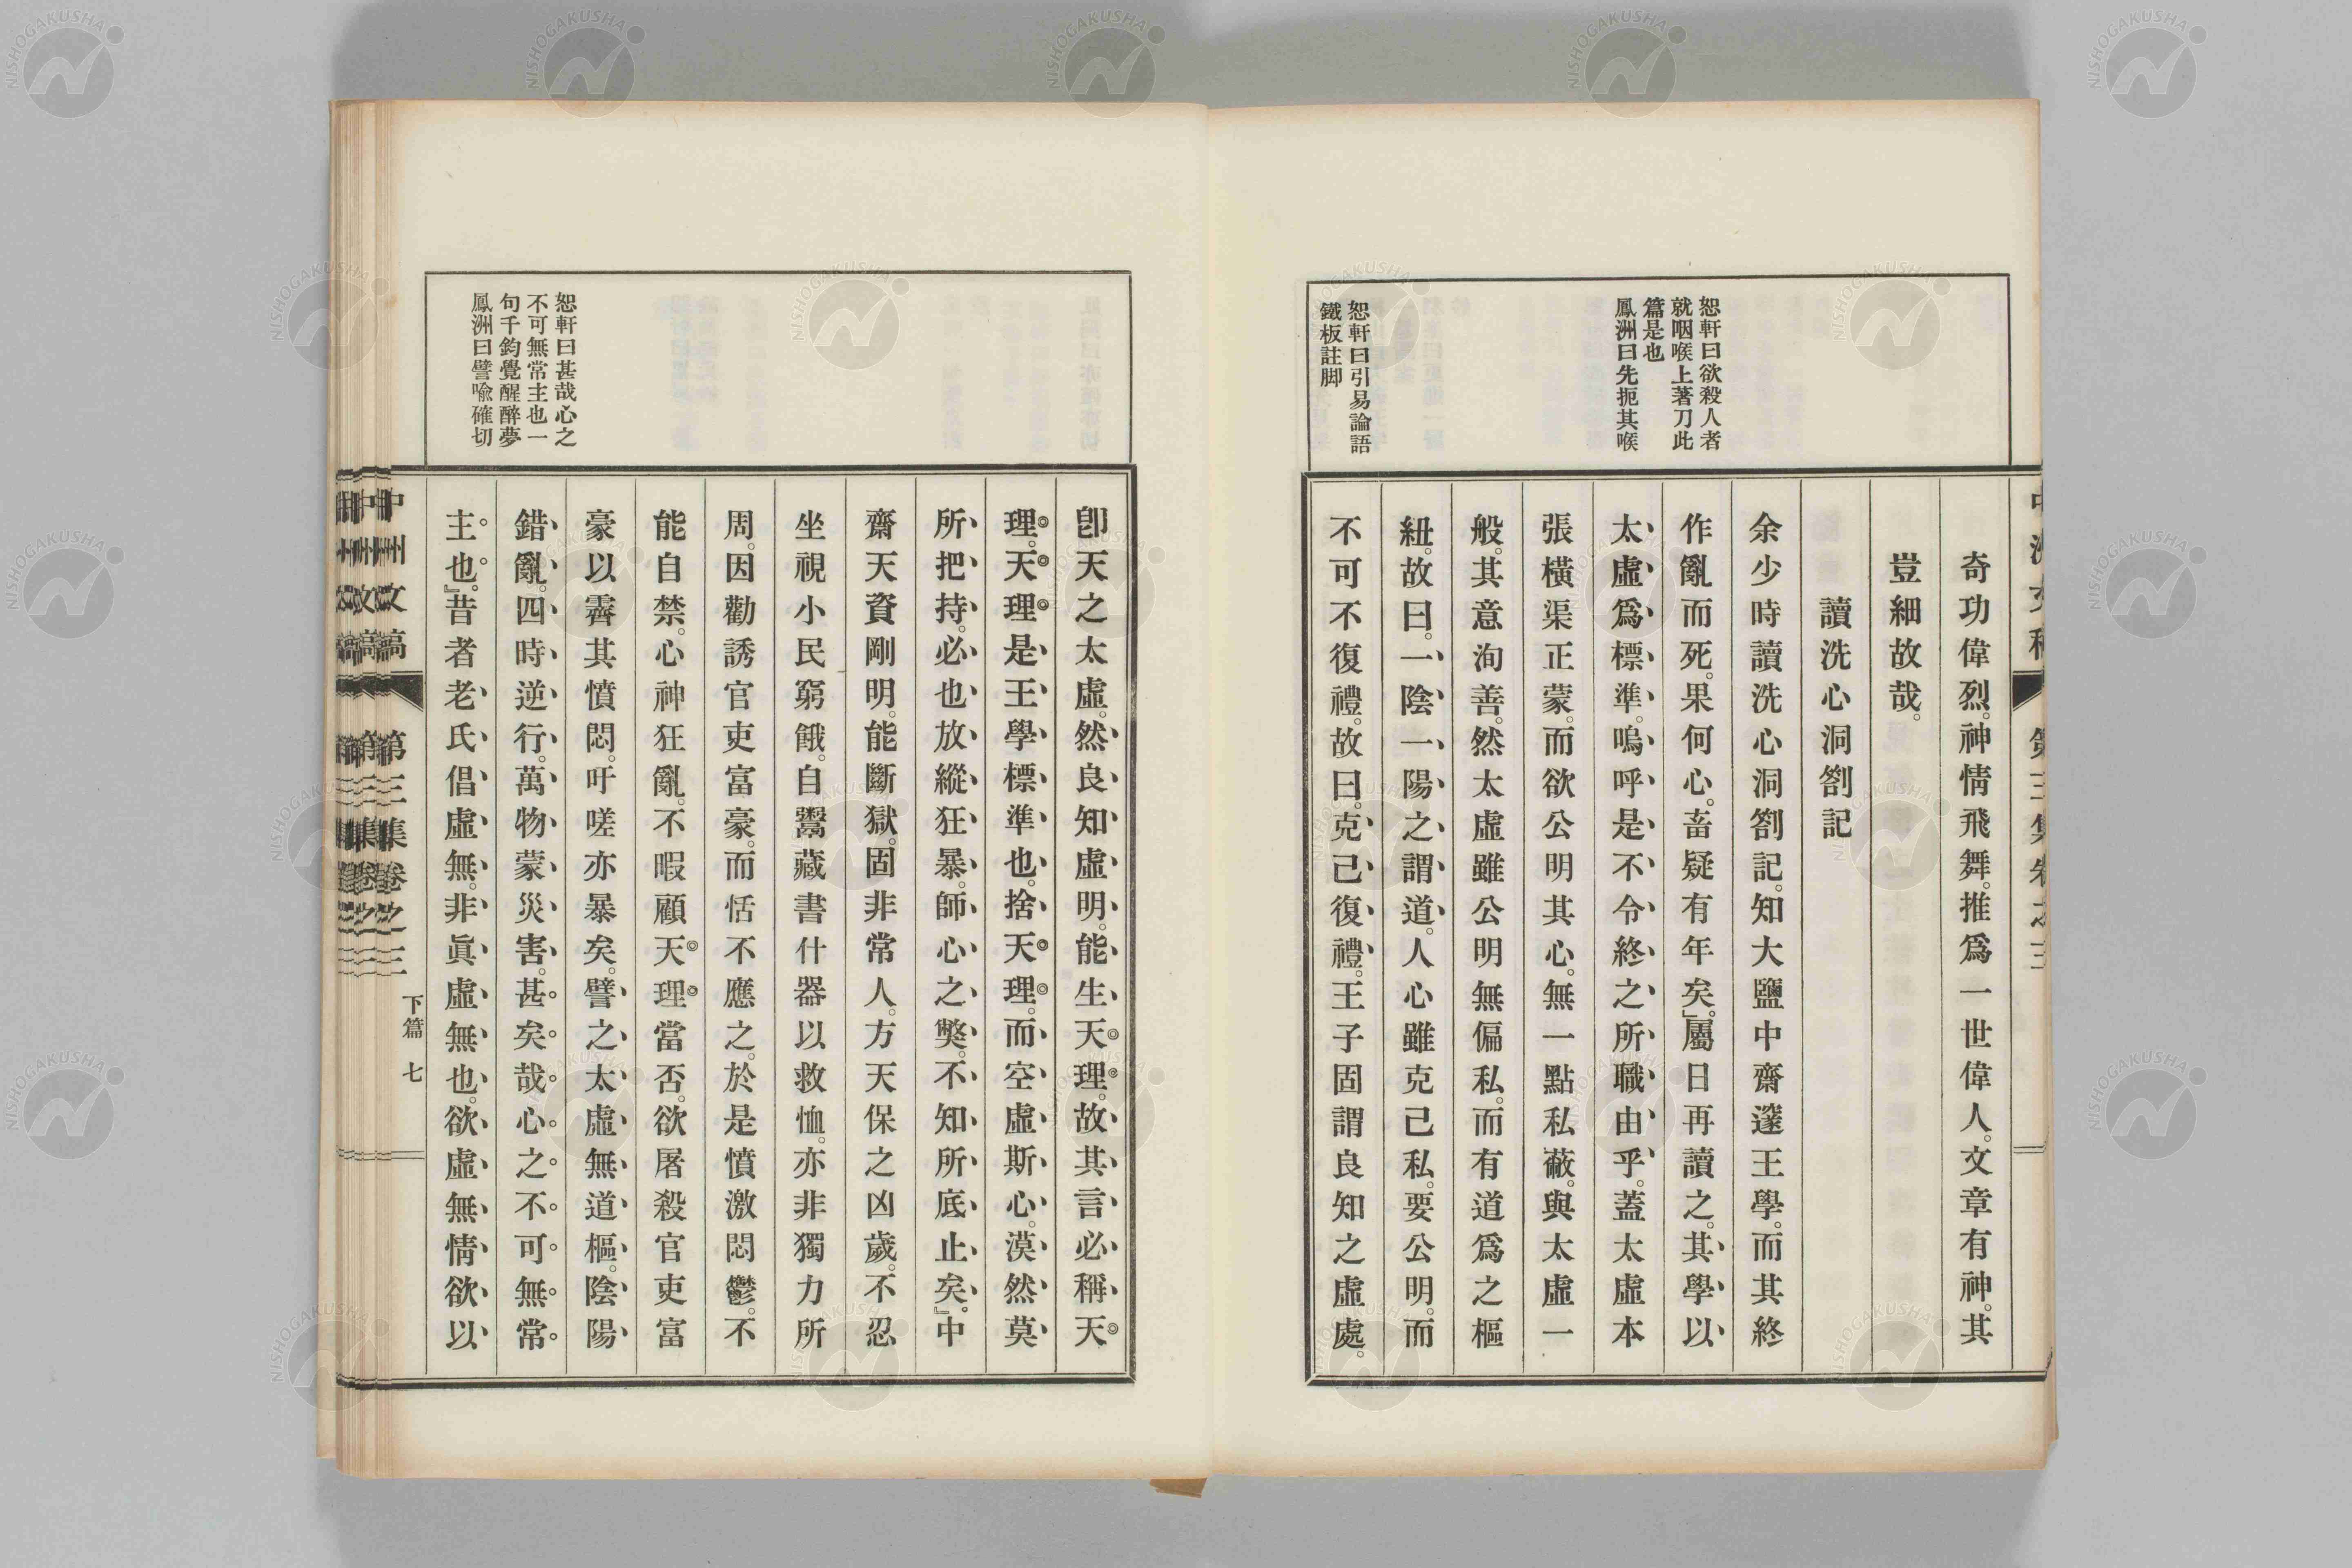 恕軒曰欲殺人者
就咽喉上著刀此
篇是也
鳳洲曰先扼其喉
恕軒曰引易論語
鐵板註脚
奇功偉烈。神情飛舞。推爲一世偉人。文章有神。其
豈細故哉。
讀洗心洞劄記
余少時讀洗心洞劄記。知大鹽中齋邃王學。而其終
作亂而死。果何心。畜疑有年矣。』屬日再讀之。其學以
太虛爲標準。嗚呼是不令終之所職由乎。蓋太虛本
張橫渠正蒙。而欲公明其心。無一點私蔽。與太虛一
般。其意洵善。然太虛雖公明無偏私。而有道爲之樞
紐。故曰。一陰一陽之謂道。人心雖克己私。要公明。而
不可不復禮。故曰。克己復禮。王子固謂良知之虛處。
恕軒曰甚哉心之
不可無常主也一
句千鈞覺醒醉夢
鳳洲曰譬喩確切
卽天之太虛。然良知虛明。能生天理。故其言必稱天
理。天理是王學標準也。捨天理。而空虛斯心。漠然莫
所把持。必也放縱狂暴。師心之獘。不知所底止矣。』中
齋天資剛明。能斷獄。固非常人。方天保之凶歲。不忍
坐視小民窮餓。自鬻藏書什器以救恤。亦非獨力所
周。因勸誘官吏富豪。而恬不應之。於是憤激悶鬱。不
能自禁。心神狂亂。不暇顧天理當否。欲屠殺官吏富
豪以霽其憤悶。吁嗟亦暴矣。譬之太虛無道樞。陰陽
錯亂。四時逆行。萬物蒙災害。甚矣哉心之不可無常
主也。』昔者老氏倡虛無。非眞虛無也。欲虛無情欲以
第三集卷之三
下篇 七
NISHOGAKUSHA